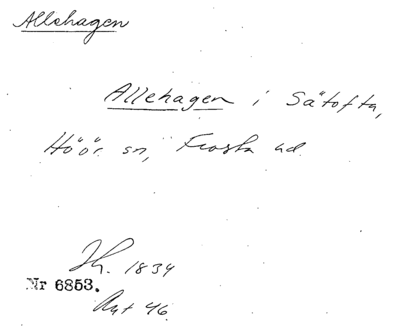 Allehagen
Allehagen i Sätofta,
Höör sn, Frosta hd
1834
Nr 6853.
Akt 46